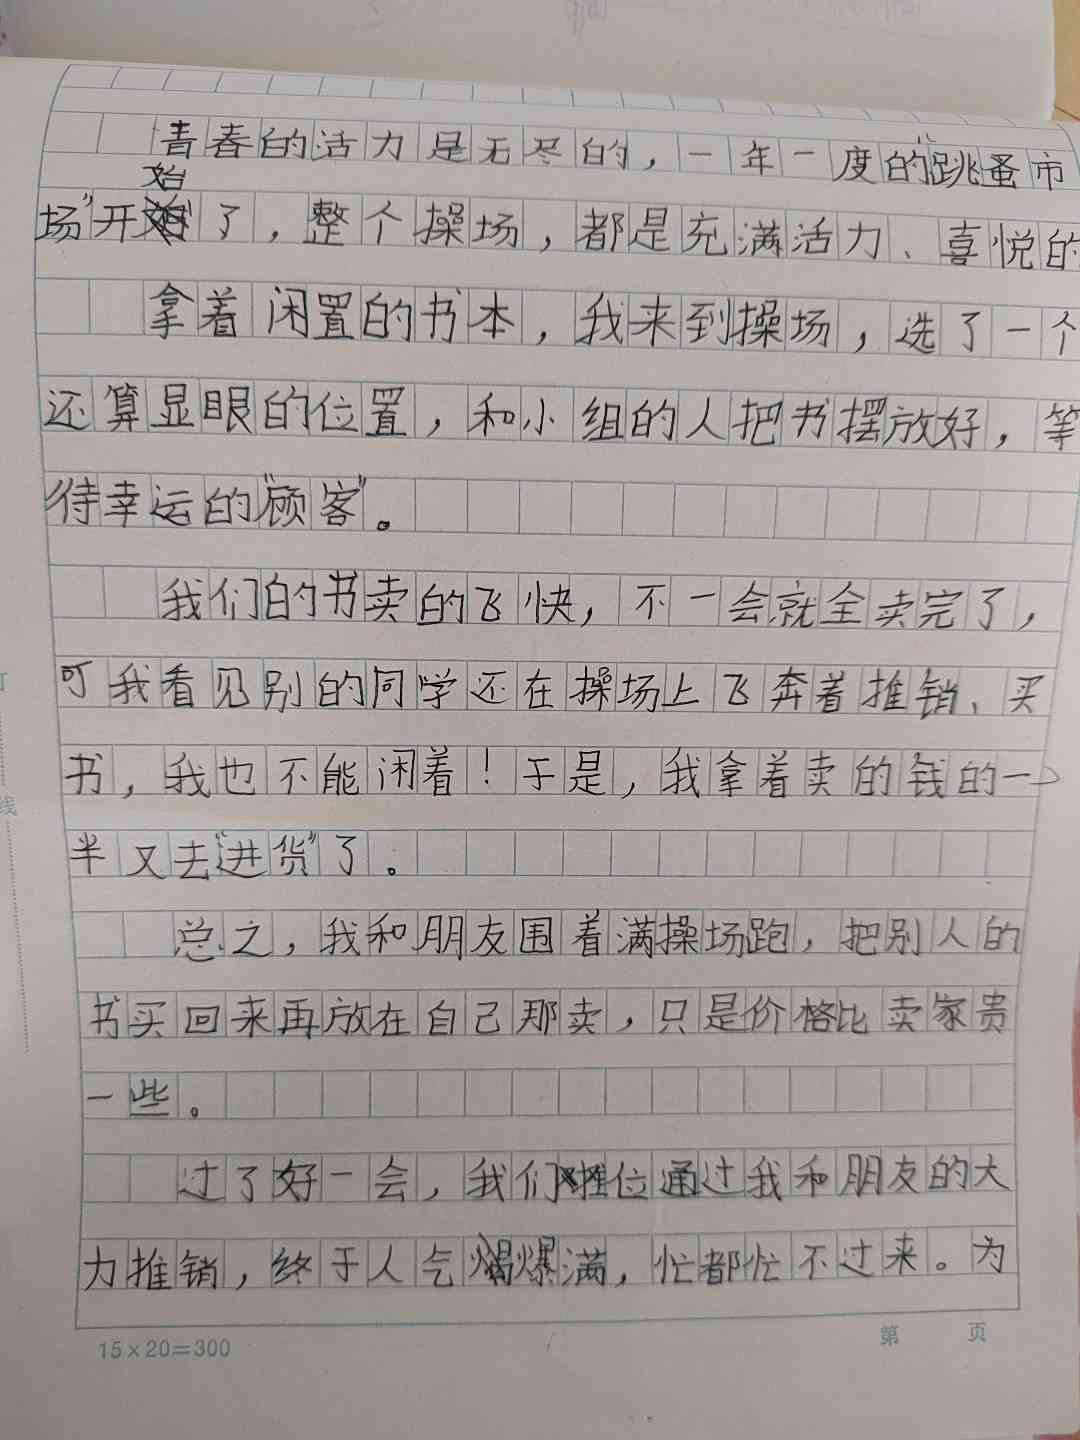 青春的活力是无尽的，一年一度的“跳蚤市
场”开始了，整个操场，都是充满活力、喜悦的
拿着闲置的书本，我来到操场，选了一个
还算显眼的位置，和小组的人把书摆放好，等
待幸运的“顾客”。
我们的书卖的飞快，不一会就全卖完了，
可我看见别的同学还在操场上飞奔着推销、买
书，我也不能闲着！于是，我拿着卖的钱的一
半又去“进货”了。
总之，我和朋友围着满操场跑，把别人的
书买回来再放在自己那卖，只是价格比卖家贵
一些。
过了好一会，我们摊位通过我和朋友的大
力推销，终于人气爆满，忙都忙不过来。为
15×20=300
第 页
线